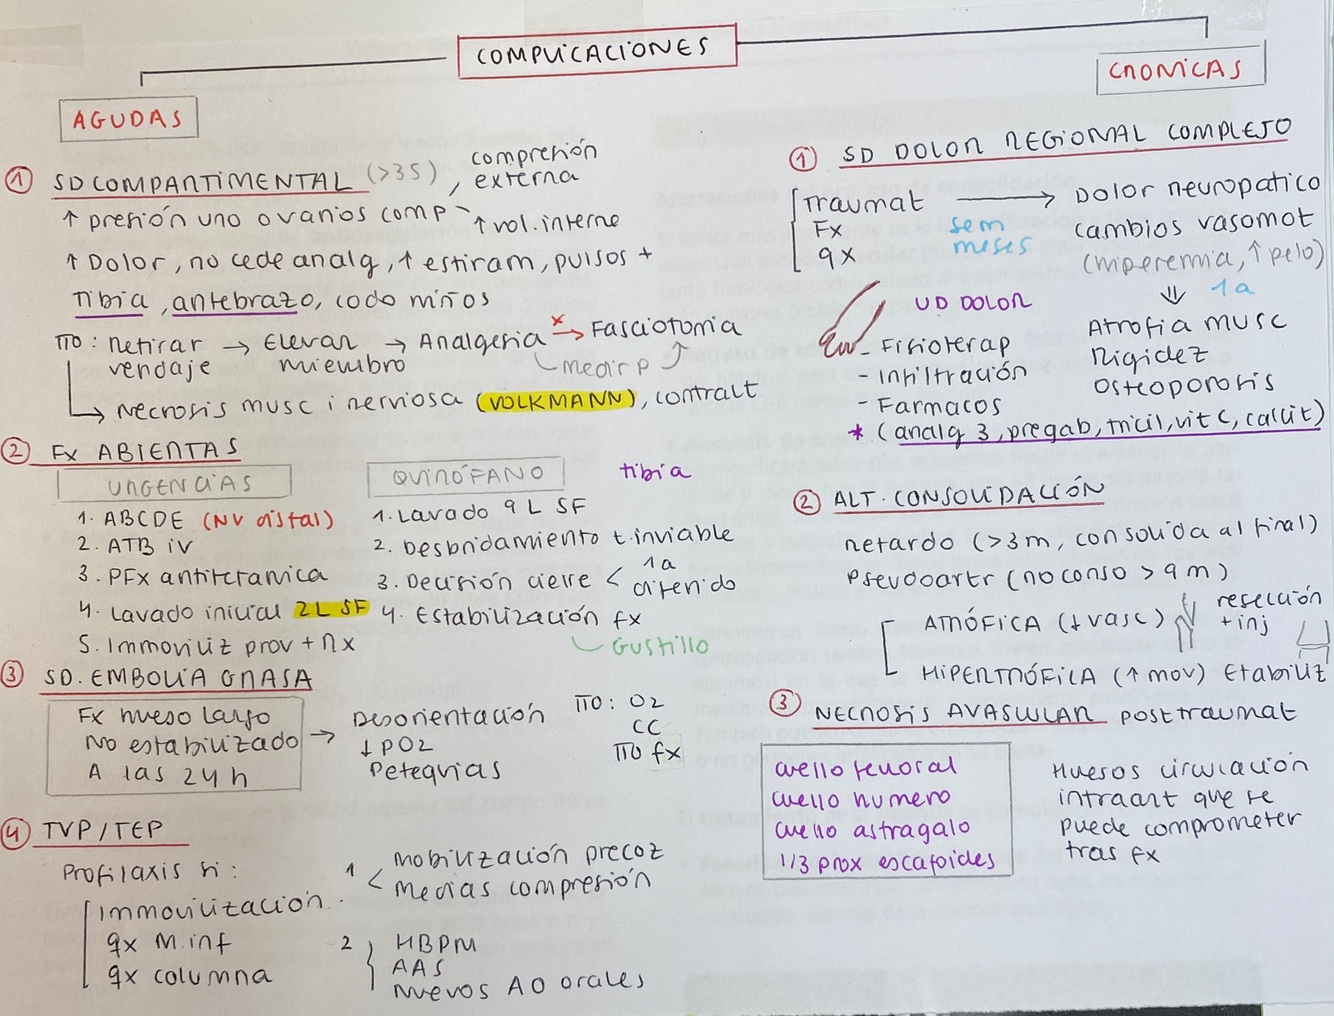 COMPLICACIONES
AGUDAS
① SD COMPARTIMENTAL (>35), compresión externa
↑ presión uno o varios comp ↑ vol. interne
↑ Dolor, no cede analg, ↑ estiram, pulsos +
tibia, antebrazo, codo niños
TTO: Retirar vendaje → Elevar miembro → Analgesia x→ Fasciotomia
medir P
↳ Necrosis musc i nerviosa (VOLKMANN), contralt
② Fx ABIERTAS
tibia
URGENCIAS
1. ABCDE (NV distal)
2. ATB iv
3. PFX antitetanica
4. Lavado inicial 2L SF
5. Immoviliz prov + Rx
QUIRÓFANO
1. Lavado 9L SF
2. Desbridamiento t. inviable
3. Decisión cierre < 1a
diferido
4. Estabilización fx
Gustillo
③ SD. EMBOLIA GRASA
Fx hueso largo
No estabilizado
A las 24h
→ Desorientación
↓ PO2
Petequias
TTO: O2
CC
TTO fx
④ TVP/TEP
Profilaxis si:
Immovilización
qx M.inf
qx columna
1 < mobilización precoz
medias compresión
2 } HBPM
AAS
Nuevos AO orales
CRONICAS
① SD DOLOR REGIONAL COMPLEJO
Traumat
Fx
qx
sem
meses
→ Dolor neuropatico
cambios vasomot
(hiperemia, ↑ pelo)
⇓ 1a
Atrofia musc
Rigidez
Osteoporosis
UD DOLOR
- Fisioterap
- Infiltración
- Farmacos
* (analg 3, pregab, tricil, vit C, calcit)
② ALT. CONSOLIDACIÓN
retardo (>3m, consolida al final)
Pseudoartr (no conso > 9m)
ATRÓFICA (↓ vasc) resección + inj
HIPERTRÓFICA (↑ mov) Etabiliz
③ NECROSIS AVASCULAR posttraumat
cuello femoral
cuello humero
cuello astragalo
1/3 prox escafoides
Huesos circulación
intraart que se
puede comprometer
tras fx